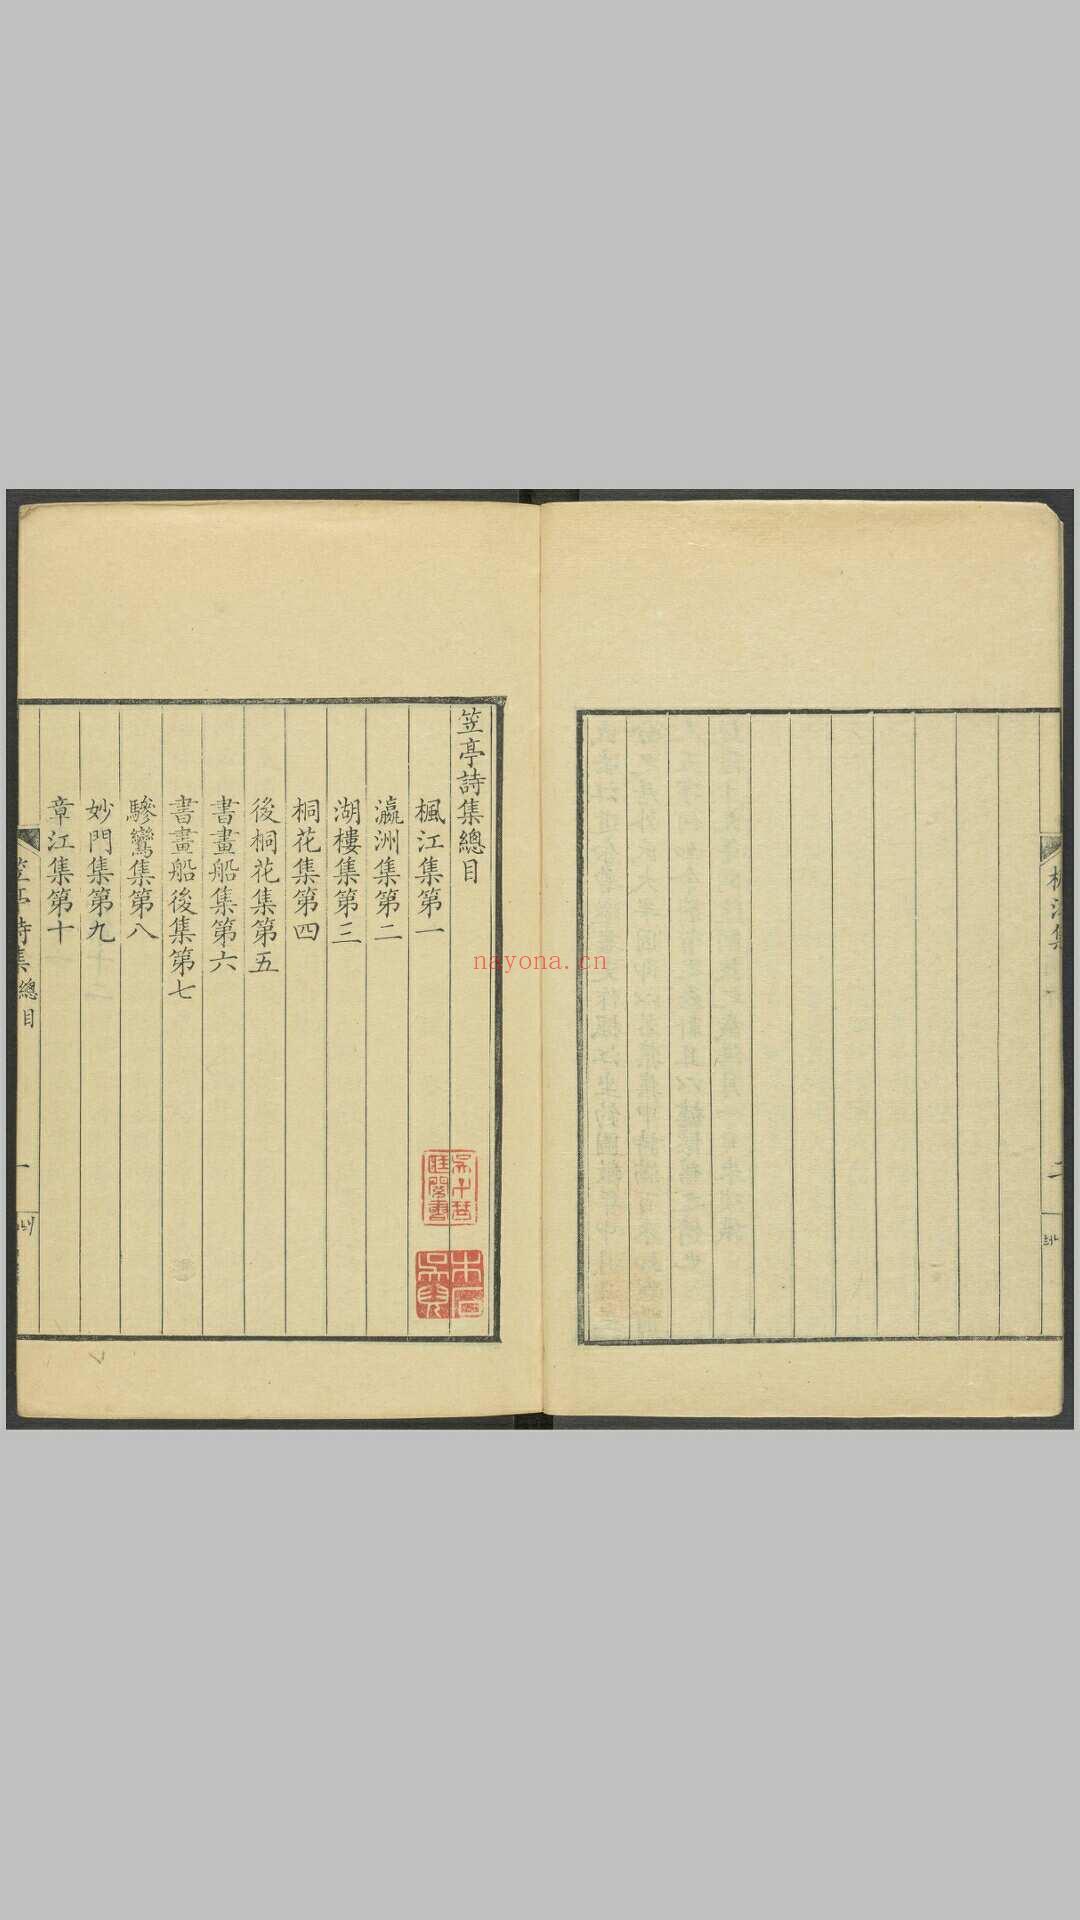 笠亭詩集總目
楓江集第一
瀛洲集第二
湖樓集第三
桐花集第四
後桐花集第五
書畫船集第六
書畫船後集第七
驂鸞集第八
妙門集第九
章江集第十
笠亭詩集
總目
一
nayona.cn